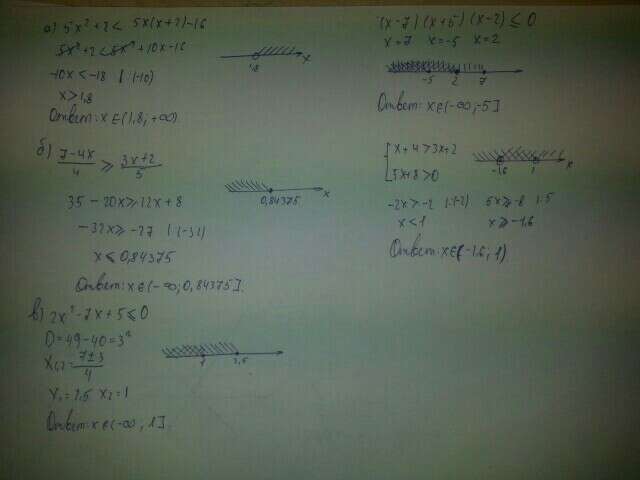 а) 5x²+2 < 5x(x+2)-16
5x²+2<5x²+10x-16
-10x<-18 | (-10)
x>1,8
1,8 x
Ответ: x∈(1,8; +∞)
б) (7-4x)/4 ≥ (3x+2)/5
35-20x≥12x+8
-32x≥-27 | (-32)
x≤0,84375
0,84375 x
Ответ: x∈(-∞; 0,84375].
в) 2x²-7x+5≤0
D=49-40=3²
x₁,₂=(7±3)/4
x₁=2,5 x₂=1
1 2,5
Ответ: x∈(-∞; 1].
(x-7)(x+5)(x-2)≤0
x=7 x=-5 x=2
-5 2 7
Ответ: x∈(-∞;-5]
{x+4>3x+2
5x+8>0
-1,6 1 x
-2x>-2 |:(-2) 5x≥-8 |:5
x<1 x≥-1,6
Ответ: x∈(-1,6; 1).